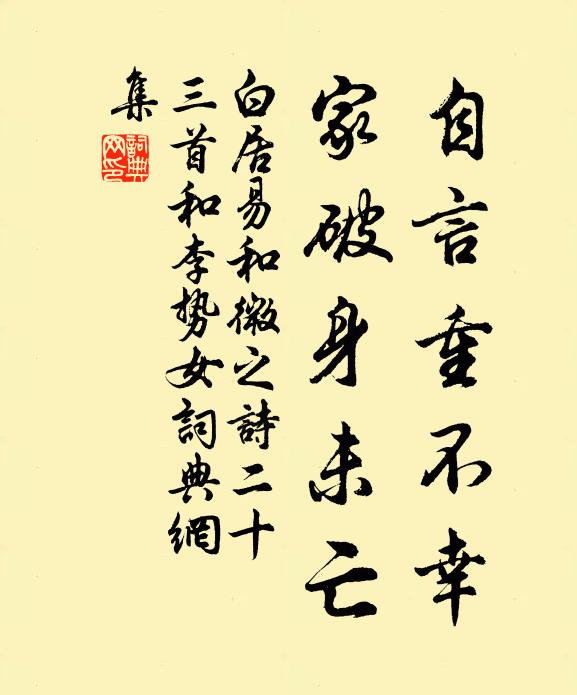 自言重不幸
家破身未亡
白居易和微之詩二十
三首和李势女詞典網
集
詞典
网印